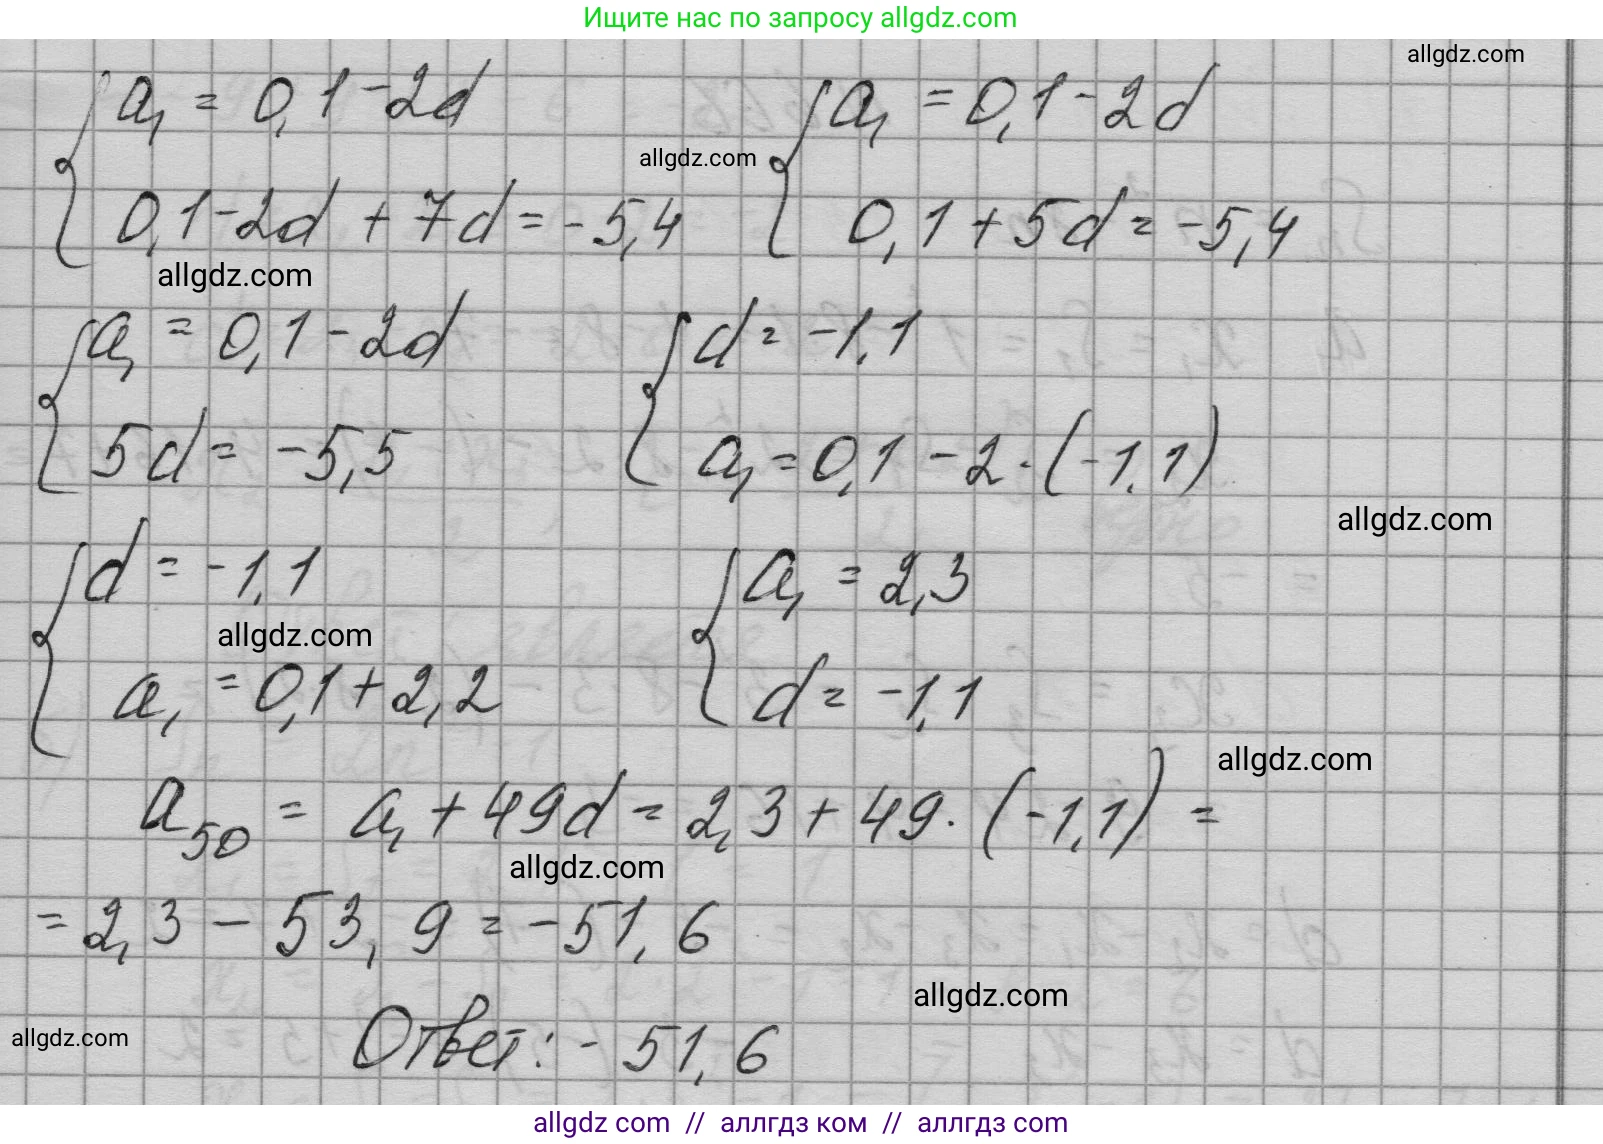 Ищите нас по запросу allgdz.com
allgdz.com
a₁ = 0,1 - 2d
a₁ = 0,1 - 2d
allgdz.com
0,1 - 2d + 7d = -5,4
0,1 + 5d = -5,4
allgdz.com
a₁ = 0,1 - 2d
d = -1,1
5d = -5,5
a₁ = 0,1 - 2 · (-1,1)
allgdz.com
d = -1,1
a₁ = 2,3
allgdz.com
a₁ = 0,1 + 2,2
d = -1,1
allgdz.com
a₅₀ = a₁ + 49d = 2,3 + 49 · (-1,1) =
allgdz.com
= 2,3 - 53,9 = -51,6
allgdz.com
allgdz.com
Ответ: -51,6
allgdz.com // аллгдз ком // аллгдз com